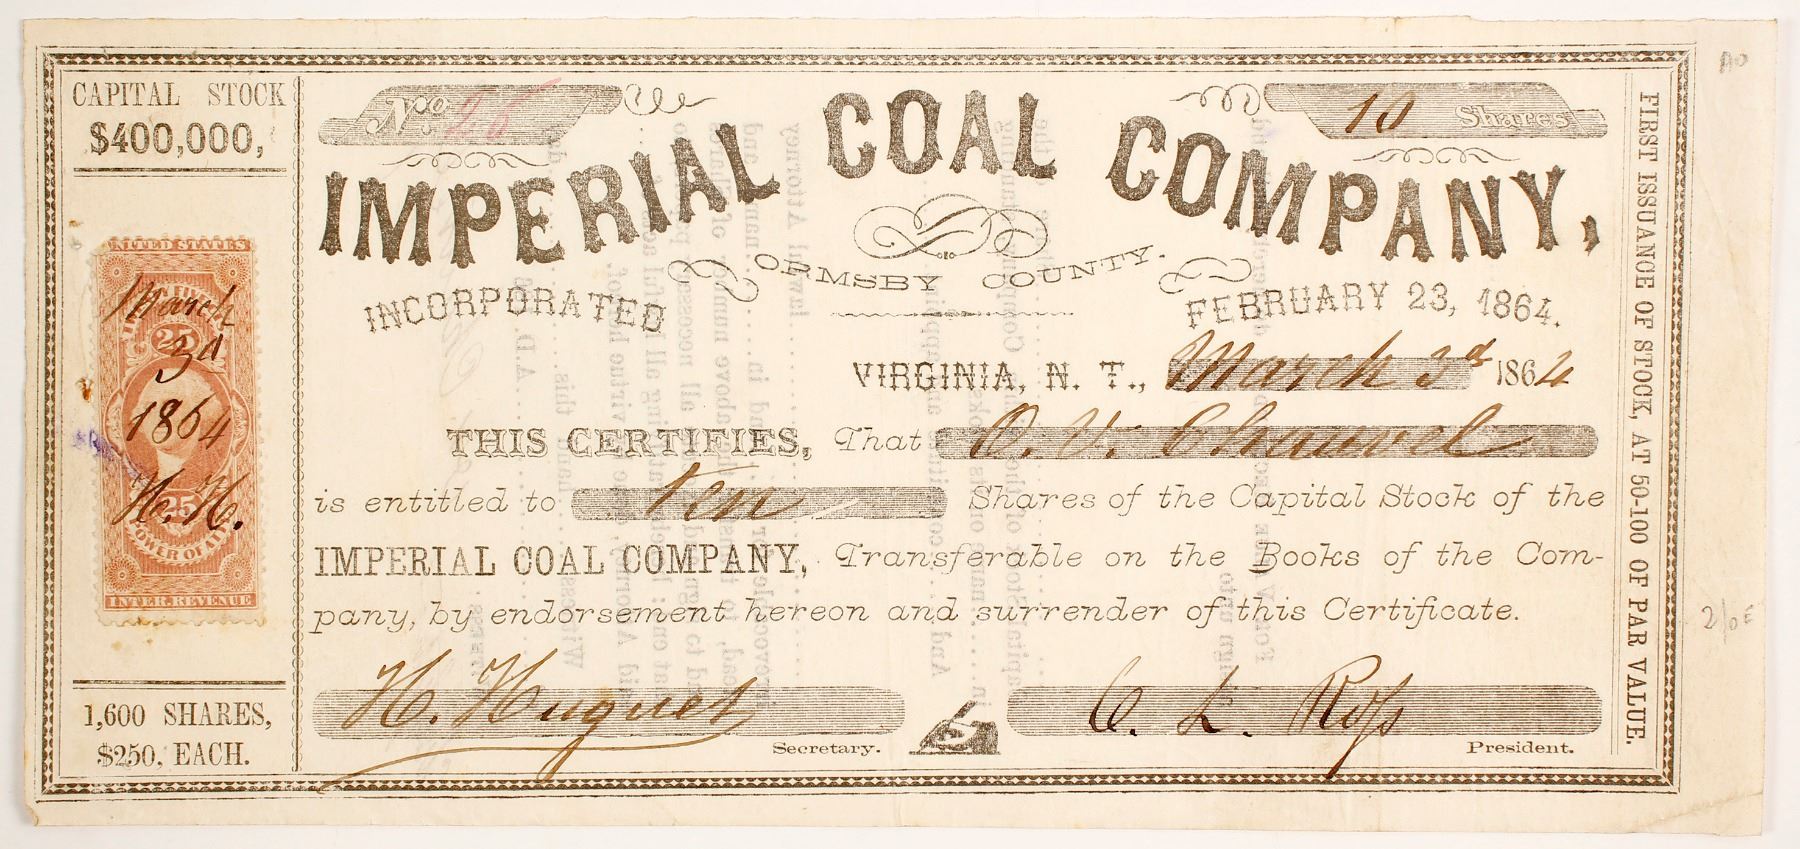 CAPITAL STOCK
$400,000,
UNITED STATES
25
March
3d
1864
H. H.
25
POWER OF AT
INTER. REVENUE
1,600 SHARES,
$250, EACH.
No. 26
10 Shares
IMPERIAL COAL COMPANY,
ORMSBY COUNTY.
INCORPORATED FEBRUARY 23, 1864.
VIRGINIA, N. T., March 3d 1864
THIS CERTIFIES, That O. V. Chauvel
is entitled to Ten Shares of the Capital Stock of the
IMPERIAL COAL COMPANY, Transferable on the Books of the Com-
pany, by endorsement hereon and surrender of this Certificate.
H. Huguet Secretary.
C. L. Ross President.
FIRST ISSUANCE OF STOCK, AT 50-100 OF PAR VALUE.